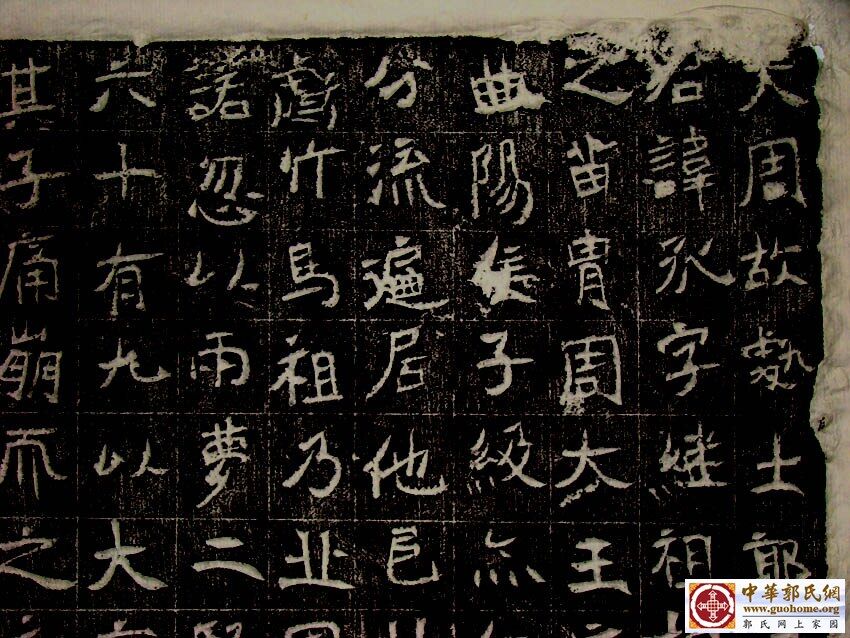 大周故處士郭
君諱字継祖
之苗胄周大王
曲陽侯子級
分流遍居他邑
竹馬祖乃北
諾忽以兩夢二
六十有九以大
其子痛崩而之
中華郭氏網
www.guohome.org
郭氏网上家园